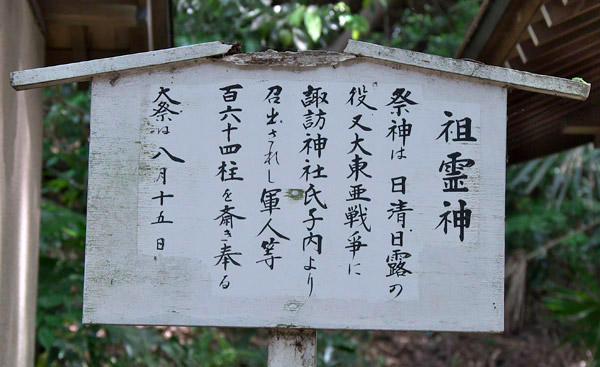 祖霊神
祭神は日清日露の
役又大東亜戦争に
諏訪神社氏子内より
召出されし軍人等
百六十四柱を斎き奉る
大祭は八月十五日